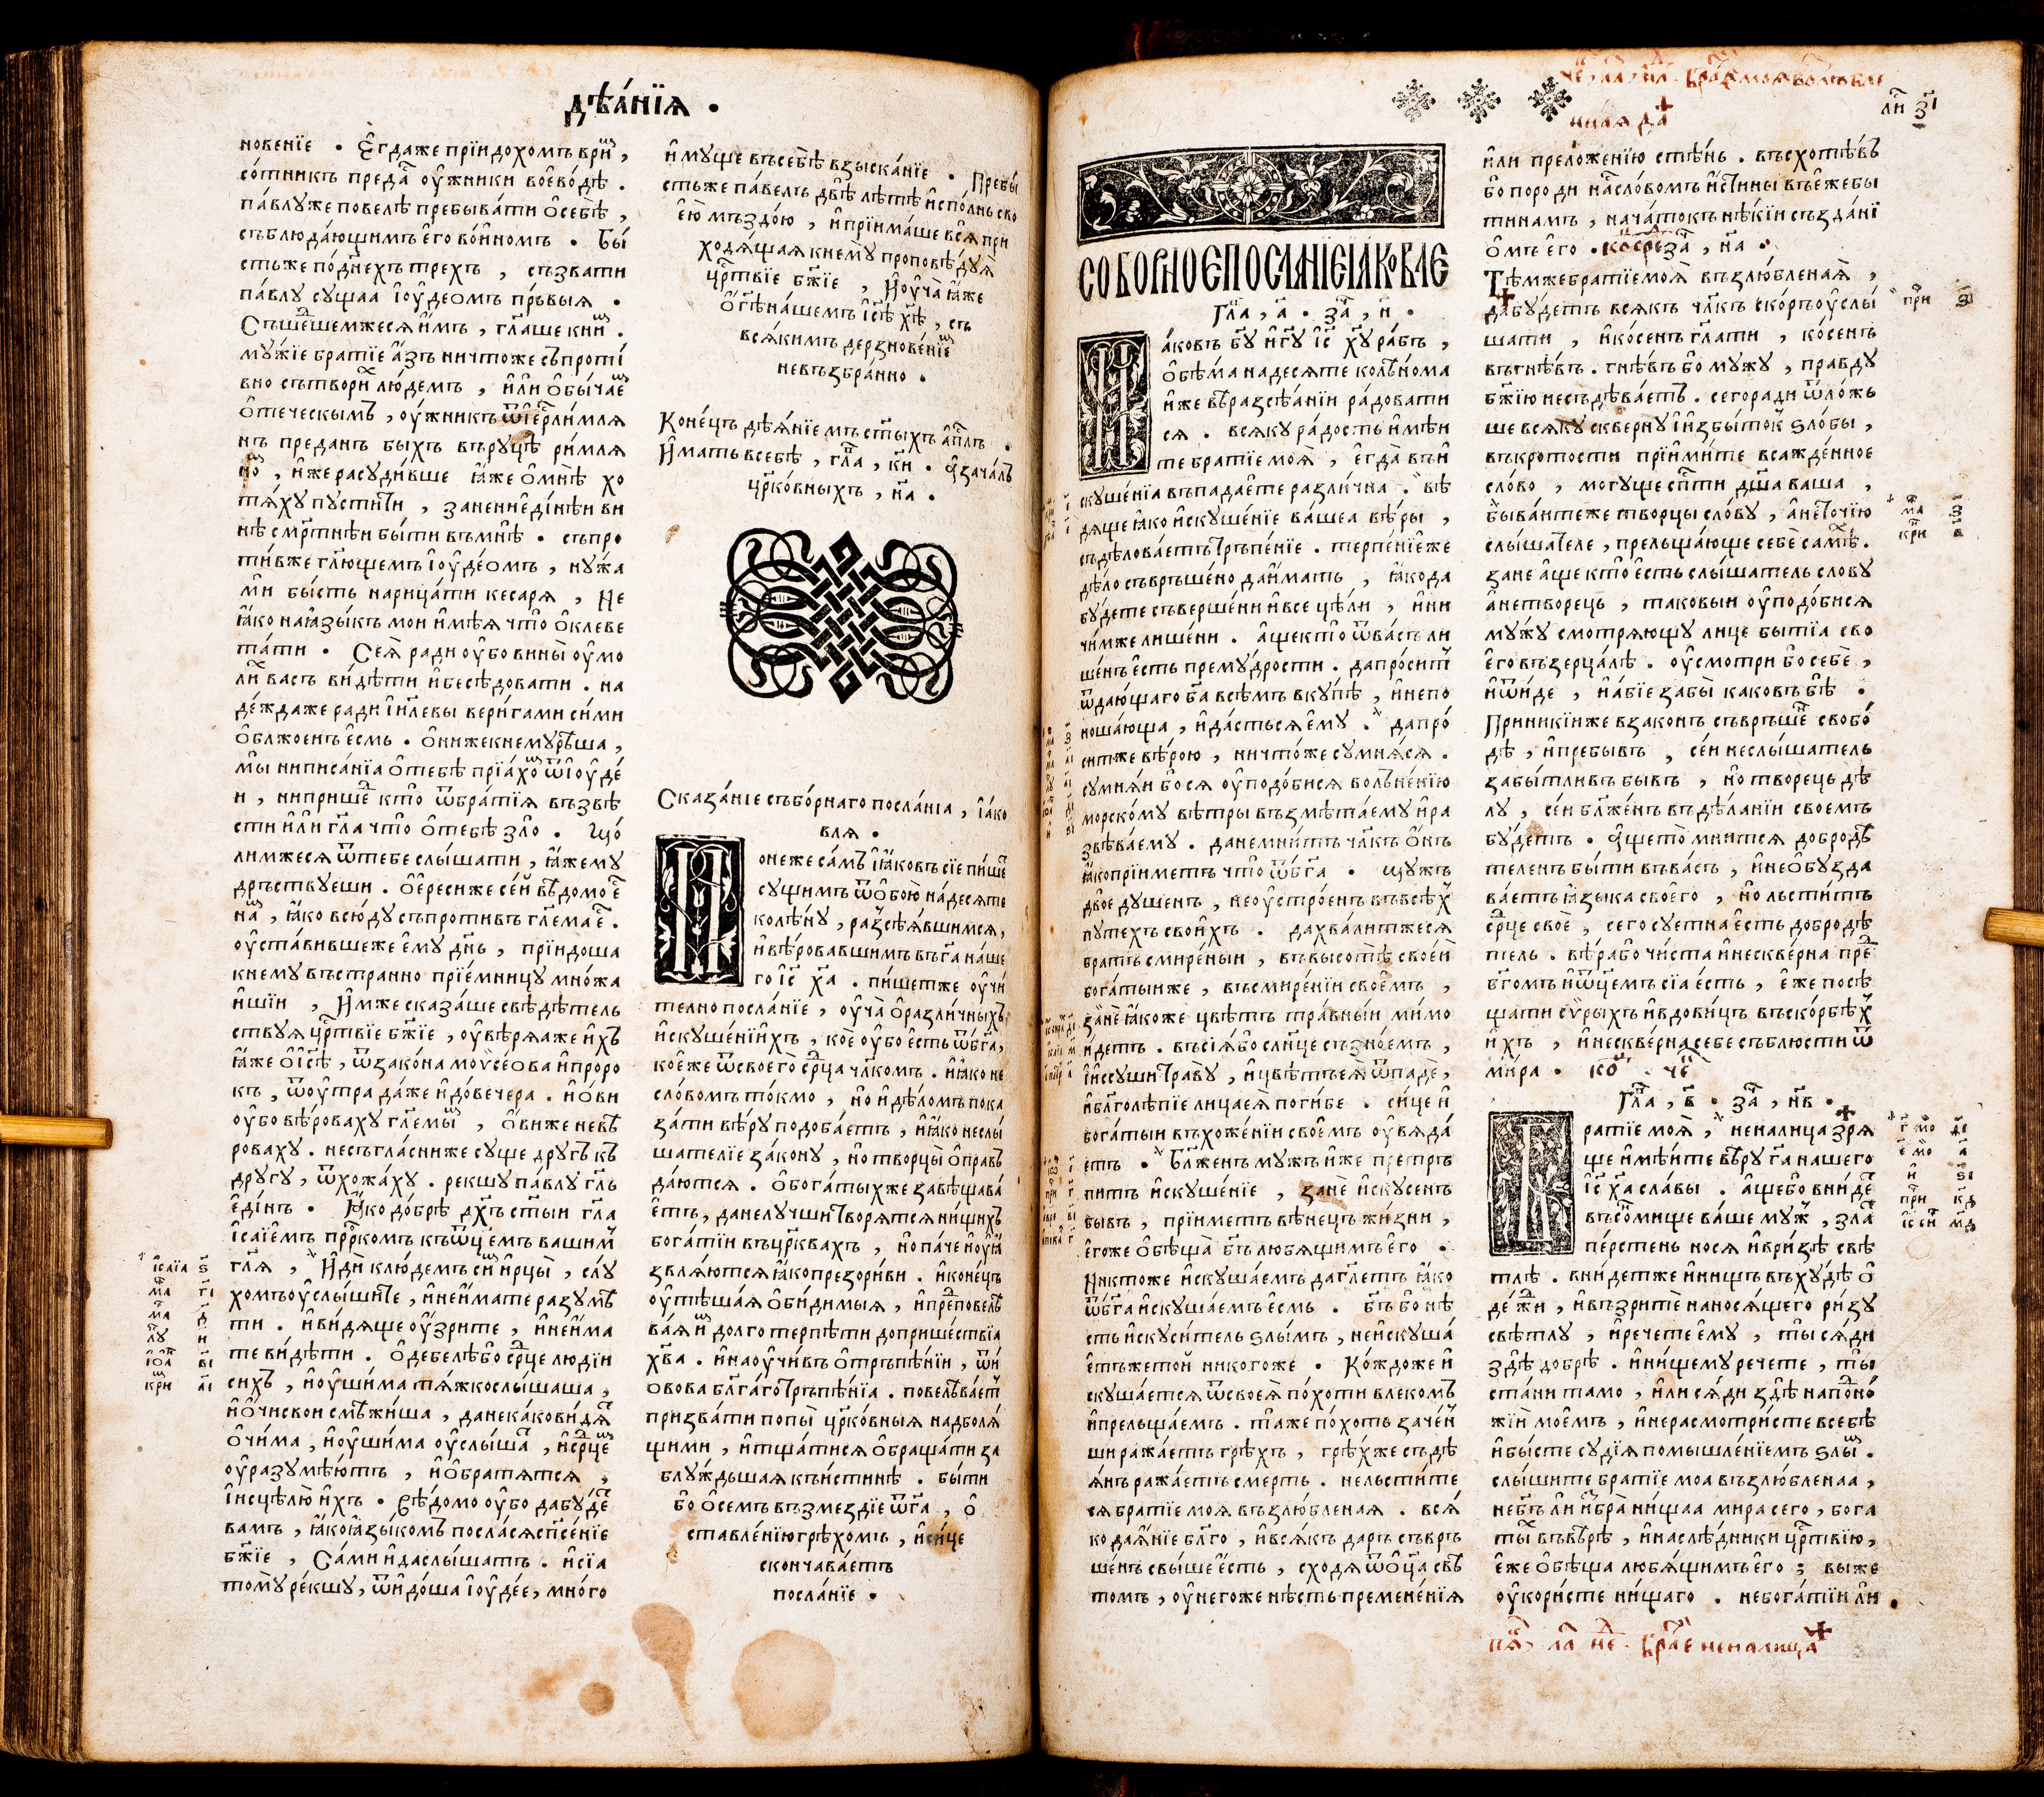 дѣѧ́нїѧ .
новенїе . Є҆гдаже прїидохомъ врⷨи ,
со́тникъ преда̑ ѹ҆́жники воево́дѣ .
па́влуже повелѣ пребыва́ти о҆себѣ̀ ,
съблюда́ющимъ є҆го во́и҆номъ . Бы́
стъже по́днехъ трехъ , съзвати
па́влу сущаа і҆ѹ҆деомъ пръвыѧ .
Съше́шемжесѧ и҆мъ , гл҃аше книⷨ .
му́жїе братїе а҆́зъ ничтоже съпроти́
вно сътвориⷯ лю́демъ , и҆ли о҆быча́еⷨ
о҆те́ческымъ , ѹ҆́жникъ ѿі҆ерⷭ҇ли́млѧ
нъ преданъ быхъ въруцѣ ри́млѧ
ноⷨ , и҆́же расуди́вше ꙗ҆́же о҆мнѣ̀ хо
тѧ́ху пусти́ти , занениеди́нѣи ви
нѣ смр҃тнѣи бы́ти въмнѣ̀ . съпро
ти́вже гл҃ющемъ і҆ѹ҆де́омъ , ну́жа
ми бы́сть нарица́ти кесарѧ , Не
ꙗ҆́ко наꙗ҆зы́къ мои и҆мѣ́ѧ что̀ о҆клеве
та́ти . Сеѧ̀ ради ѹ҆́бо вины̀ ѹ҆мо
лиⷯ васъ ви́дѣти и҆бесѣ́довати . на
де́ждаже ради і҆и҃левы вери́гами си́ми
о҆бложенъ є҆смь . о҆нижекнемурѣша ,
мы ниписа́нїа о҆тебѣ̀ прїа́хоⷨ ѿі҆ѹ҆де́
и , ниприше́ⷣ кто̀ ѿбра́тїѧ възвѣ
сти и҆ли гл҃а что̀ о҆тебѣ̀ зло̀ . Що́
лимжесѧ ѿтебе слы́шати , ꙗ҆́жему
дръствуеши . о҆е҆ресиже се́й вѣ́домо еⷭ҇
наⷨ , ꙗ҆́ко всю́ду съпротивъ гл҃ема еⷭ҇ .
ѹ҆ста́вившеже є҆му дн҃ь , прїидоша
кнему въстранно прїе́мницу мно́жа
и҆шїи , И҆́мже сказа́ше свѣдѣтель
ствуѧ цр҃твїе бж҃їе , ѹ҆вѣрѧаже и҆́хъ
ꙗ҆́же о҆і҆с҃ѣ , ѿзако́на моѷсе́ова и҆проро
къ , ѿѹ҆́тра да́же и҆до́вечера . и҆о́ви
ѹ҆́бо вѣ́роваху гл҃емыⷨ , о҆́виже невѣ
роваху . несъгла́сниже суще дру́гъ къ
другу , ѿхожа́ху . рекшу па́влу гл҃ь
є҆ди́нъ . Ꙗ҆́ко до́брѣ дх҃ъ ст҃ыи гл҃а
і҆са́їемъ прⷪ҇ркомъ къѿц҃емъ вашимⷨ
гл҃ѧ , И҆ди̏ клю́демъ сиⷨ и҆рцы̀ , слу́
хомъ ѹ҆слы́шите , и҆неи҆мате разумѣ
ти . и҆ви́дѧще ѹ҆́зрите , и҆неи҆ма
те ви́дѣти . о҆дебелѣ́бо срⷣце людїи
сихъ , и҆ѹ҆ши́ма тѧ́жкослы́шаша ,
и҆о҆́чисвои смѣ́жиша , данека́ковидѧⷮ
о҆чи́ма , и҆ѹ҆ши́ма ѹ҆слы́шаⷮ , и҆срⷣцеⷨ
ѹ҆разумѣ́ютъ , и҆о҆братѧтсѧ ,
і҆исцѣлю и҆́хъ . Вѣ́домо ѹ҆́бо дабу́деⷮ
вамъ , ꙗ҆́коꙗ҆зы́комъ посла́сѧсп҃се́нїе
бж҃їе , Са́ми и҆даслы́шатъ . и҆сїа
тому ре́кшу , ѿидо́ша і҆ѹ҆де́е , мно́го
і҆саїа ѕ
маⷮ гі
маⷬ д
лу и
і҆ѡаⷩ ві
криⷩ аі
и҆́муще въсебѣ̀ взыска́нїе . Пребы́
стьже па́велъ двѣ̀ лѣ́тѣ и҆спо́лнь сво
є҆ю̀ мъздо́ю , и҆прїима́ше всѧ̀ при
ходѧ́щаѧ кнему проповѣ́дуѧ
црⷭ҇твїе бж҃їе , И҆ѹ҆ча̀ ꙗ҆́же
о҆гдⷭ҇ѣ на́шемъ і҆с҃ѣ хⷭ҇ѣ , съ
всѧ́кимъ дерзнове́нїеⷨ
невъзбра́нно .
Коне́цъ дѣѧ́нїемъ ст҃ыхъ а҆пⷭ҇лъ .
И҆мать всебѣ̀ , гла , ки . А҆ зача́лъ
црⷦ҇о́вныхъ , на .
Сказа́нїе събо́рнаго посла́нїа , і҆а́ко
влѧ .
Понеже са́мъ і҆ꙗ҆́ковъ сїе пи́шеⷮ
сущимъ ѿо҆бою̀ на́десѧте
колѣ́ну , разⷭ҇сѣѧ́вшимсѧ ,
и҆вѣ́ровавшимъ въг҃а на́ше
го і҆с҃ хⷭ҇а . пи́шетже ѹ҆чи
телно посла́нїе , ѹ҆ча̀ о҆разли́чныхъ
и҆скуше́нїихъ , ко́е ѹ҆́бо є҆сть ѿбг҃а ,
ко́еже ѿсвоего̀ срⷣца чл҃комъ . и҆ꙗ҆́ко не
сло́вомъ то́кмо , но̀ и҆дѣ́ломъ пока
за́ти вѣ́ру подоба́етъ , и҆ꙗ҆́ко неслы́
шателїе за́кону , но̀ творцы̀ о҆правъ
да́ютсѧ . о҆бога́тыхже завѣщава́
є҆тъ , данелучши творѧтсѧ ни́щихъ
бога́тїи въцр҃квахъ , но̀ па́че и҆ѹ҆кⷯ
звлѧ́ютсѧ ꙗ҆́копрезори́ви . и҆коне́цъ
ѹ҆тѣша́ѧ о҆би́димыѧ , и҆преⷣповелѣ
ва́ѧ иⷨ долготерпѣ́ти допри́шествїа
хⷭ҇ва . и҆наѹ҆чи́въ о҆тръпѣ́нїи , ѿи́
овова бл҃га́го тръпѣ́нїа . повелѣва́етⷮ
призва́ти попы̀ црⷦ҇о́вныѧ надболѧ́
щими , и҆тща́тисѧ о҆браща́ти за
блу́ждьшаѧ къи́стинѣ . бы́ти
бо о҆сємъ възмездїе ѿг҃а , о҆
ставле́нїю грѣ́хомъ , и҆си́це
скончава́етъ
посла́нїе .
чеⷮ , ла , нⷣл . браⷮе моѧ возлюбле
ннаѧ да
лиⷭ зі
СОБОРНОЄ ПОСЛАНЇЄ ІАКОВЛЄ
Гла , а . заⷱ , н .
Иа́ковъ бг҃у и҆гдⷭ҇у і҆с҃ хⷭ҇у ра́бъ ,
о҆бѣ́ма надесѧте колѣ́нома
и҆́же въразсѣ́ѧнїи ра́довати
сѧ . всѧ́ку ра́дость и҆мѣ́и
те бра́тїе моѧ̀ , є҆гда̀ въи
скуше́нїа въпада́ете разли́чна . вѣ́
дѧще ꙗ҆́ко и҆скуше́нїе ва́шеа вѣ́ры ,
съдѣлова́етъ тръпе́нїе . терпе́нїеже
дѣ́ло съвръше́но даи҆́мать , ꙗ҆́кода
бу́дете съверше́ни и҆все цѣ́ли , и҆ни
чи́мже лише́ни . а҆ще кто̀ ѿва́съ ли
ше́нъ є҆сть прему́дрости . дапро́ситⷮ
ѿдаю́щаго бг҃а всѣ́мъ вку́пѣ , и҆непо
ноша́юща , и҆да́стьсѧ є҆му . дапро́
ситже вѣ́рою , ничто́же сумнѧ́сѧ .
сумнѧ́и бо сѧ ѹ҆подо́бисѧ волъне́нїю
морско́му вѣ́тры възмѣта́ему и҆ра
звѣва́ему . данемни́тъ чл҃къ о҆́нъ
ꙗ҆́ко прїиметъ что̀ ѿбг҃а . щу́жъ
двое душенъ , неѹ҆стро́енъ въвсѣ́хⷯ
путехъ свои́хъ . дахва́литжесѧ
братъ смире́ныи , въвысотѣ̀ свое́й
бога́тыиже , въсмире́нїи свое́мъ ,
занѐ ꙗ҆́коже цвѣ́тъ тра́вныи мимо
и҆детъ . въсїѧ́бо сл҃нце съзно́емъ ,
і҆иссуши̏ траву , и҆цвѣ́тъ еѧ̀ ѿпадѐ ,
и҆бл҃голѣ́пїе лица́ еѧ̀ поги́бе . си́це и҆
бога́тыи въхоже́нїи свое́мъ ѹ҆вѧда́
етъ . Бл҃же́нъ му́жъ и҆́же претръ
питъ и҆скуше́нїе , занѐ и҆скусенъ
бывъ , прїиметъ вѣне́цъ жи́зни ,
є҆гоже о҆бѣща̀ бг҃ъ лю́бѧщимъ є҆го .
Никтоже и҆скуша́емъ дагл҃етъ ꙗ҆́ко
ѿбг҃а и҆скуша́емъ є҆смь . бг҃ъ бо нѣ
сть и҆скуси́тель ѕлы́мъ , неи҆скуша́
є҆тъжетой никогоже . Ко́ждоже и҆
скуша́етсѧ ѿсвоеѧ̀ по́хоти влеко́мъ
и҆прельща́емъ . та́же по́хоть заче́н
ши ража́етъ грѣ́хъ , грѣ́хже съдѣ
ѧ́нъ ража́етъ смерть . нельсти́те
сѧ бра́тїе моѧ̀ възлю́бленаѧ . всѧ́
ко даѧ́нїе бл҃го , и҆всѧ́къ да́ръ съвръ
ше́нъ свы́ше є҆сть , сходѧ ѿѻ҆ц҃а свѣ
томъ , ѹ҆негоже нѣ́сть премене́нїѧ
и҆ли преложе́нїю стѣ́нь . въсхотѣ́въ
бо породи на́съ сло́вомъ и҆́стины въе҆́жебы
ти намъ , нача́токъ нѣ́кїи създа́нї
о҆мъ є҆го . ко срⷣе заⷱ , на .
Тѣ́мже бра́тїе моѧ̀ възлю́бленаѧ ,
дабу́детъ всѧ́къ чл҃къ ско́ръ ѹ҆слы́
шати , и҆ко́сенъ гл҃ати , ко́сенъ
въгнѣ́въ . гнѣ́въ бо му́жу , пра́вду
бж҃їю несъдѣва́етъ . сегоради ѿло́жь
ше всѧ́ку скве́рну і҆избы́токⷦ ѕло́бы ,
въкро́тости прїими́те всажде́нное
сло́во , могу́ще сп҃сти дш҃а ва́ша ,
быва́итеже творцы̀ сло́ву , а҆не то́чїю
слы́шателе , прельща́юще себѐ самѣ̀ .
занѐ а҆́ще кто̀ є҆сть слы́шатель сло́ву
а҆нетворе́цъ , таковыи ѹ҆подо́бисѧ
му́жу смотрѧ́ющу лице бытїа сво
є҆го въ зерца́лѣ . ѹ҆смотри̏ бо себѐ ,
и҆ѿи́де , и҆а́бїе забы̀ каковъ бѣ̀ .
Прини́кїиже взако́нъ съвръше́нⷩ свобо́
дѣ , и҆пребы́въ , се́и неслы́шатель
забы́тливъ бы́въ , но̀ творе́цъ дѣ́
лу , се́и бл҃же́нъ въдѣ́ланїи своемъ
бу́детъ . А҆ще то̀ мнитсѧ добродѣ
теленъ бы́ти въва́съ , и҆не о҆бузда
ва́етъ ꙗ҆зы́ка своего , но̀ льсти́тъ
срⷣце своѐ , сего су́етна є҆сть добродѣ́
тель . вѣ́рабо чи́ста и҆нескве́рна преⷣ
бг҃омъ и҆ѿц҃емъ сїа є҆сть , є҆́же посѣ
щати си́рыхъ и҆вдови́цъ въско́рбѣхⷯ
и҆хъ , и҆нескве́рна себе съблюсти ѿ
ми́ра . коⷩ҇ чеⷮ
Гла , в . заⷱ , нв .
Братїе моѧ̀ , неналица зрѧ
ще и҆мѣ́ите вѣ́ру гⷭ҇а нашего
і҆с҃ хⷭ҇а сла́вы . а҆́ще бо вни́деⷮ
въсо́нмище ва́ше муⷤ , златⷮ
пе́рстень носѧ и҆вризѣ свѣ́
тлѣ . вни́детже и҆нищъ въху́дѣ о҆
де́жⷣи , и҆възрите̏ наносѧ́щего ри́зу
свѣ́тлу , и҆речете є҆му , ты̀ сѧ́ди
здѣ̀ до́брѣ . и҆ни́щему речете , ты̀
ста́ни тамо , и҆ли сѧ́ди здѣ̀ напоⷣно́
жїи̏ мое́мъ , и҆нерасмотри́сте всебѣ̀
и҆бы́сте судїѧ помышле́нїемъ ѕлыⷨ .
слы́шите бра́тїе моа възлю́бленаа ,
небг҃ъ ли и҆збра̀ ни́щаа мира сего , бога
тыⷯ въвѣ́рѣ , и҆наслѣ́дники црⷭ҇твїю ,
є҆́же о҆бѣща лю́бѧщимъ є҆го ; выже
ѹ҆кори́сте ни́щаго . небога́тїи ли
приⷮ зі
маⷮ з
паⷮ , ла неⷣ . браⷮе неналица